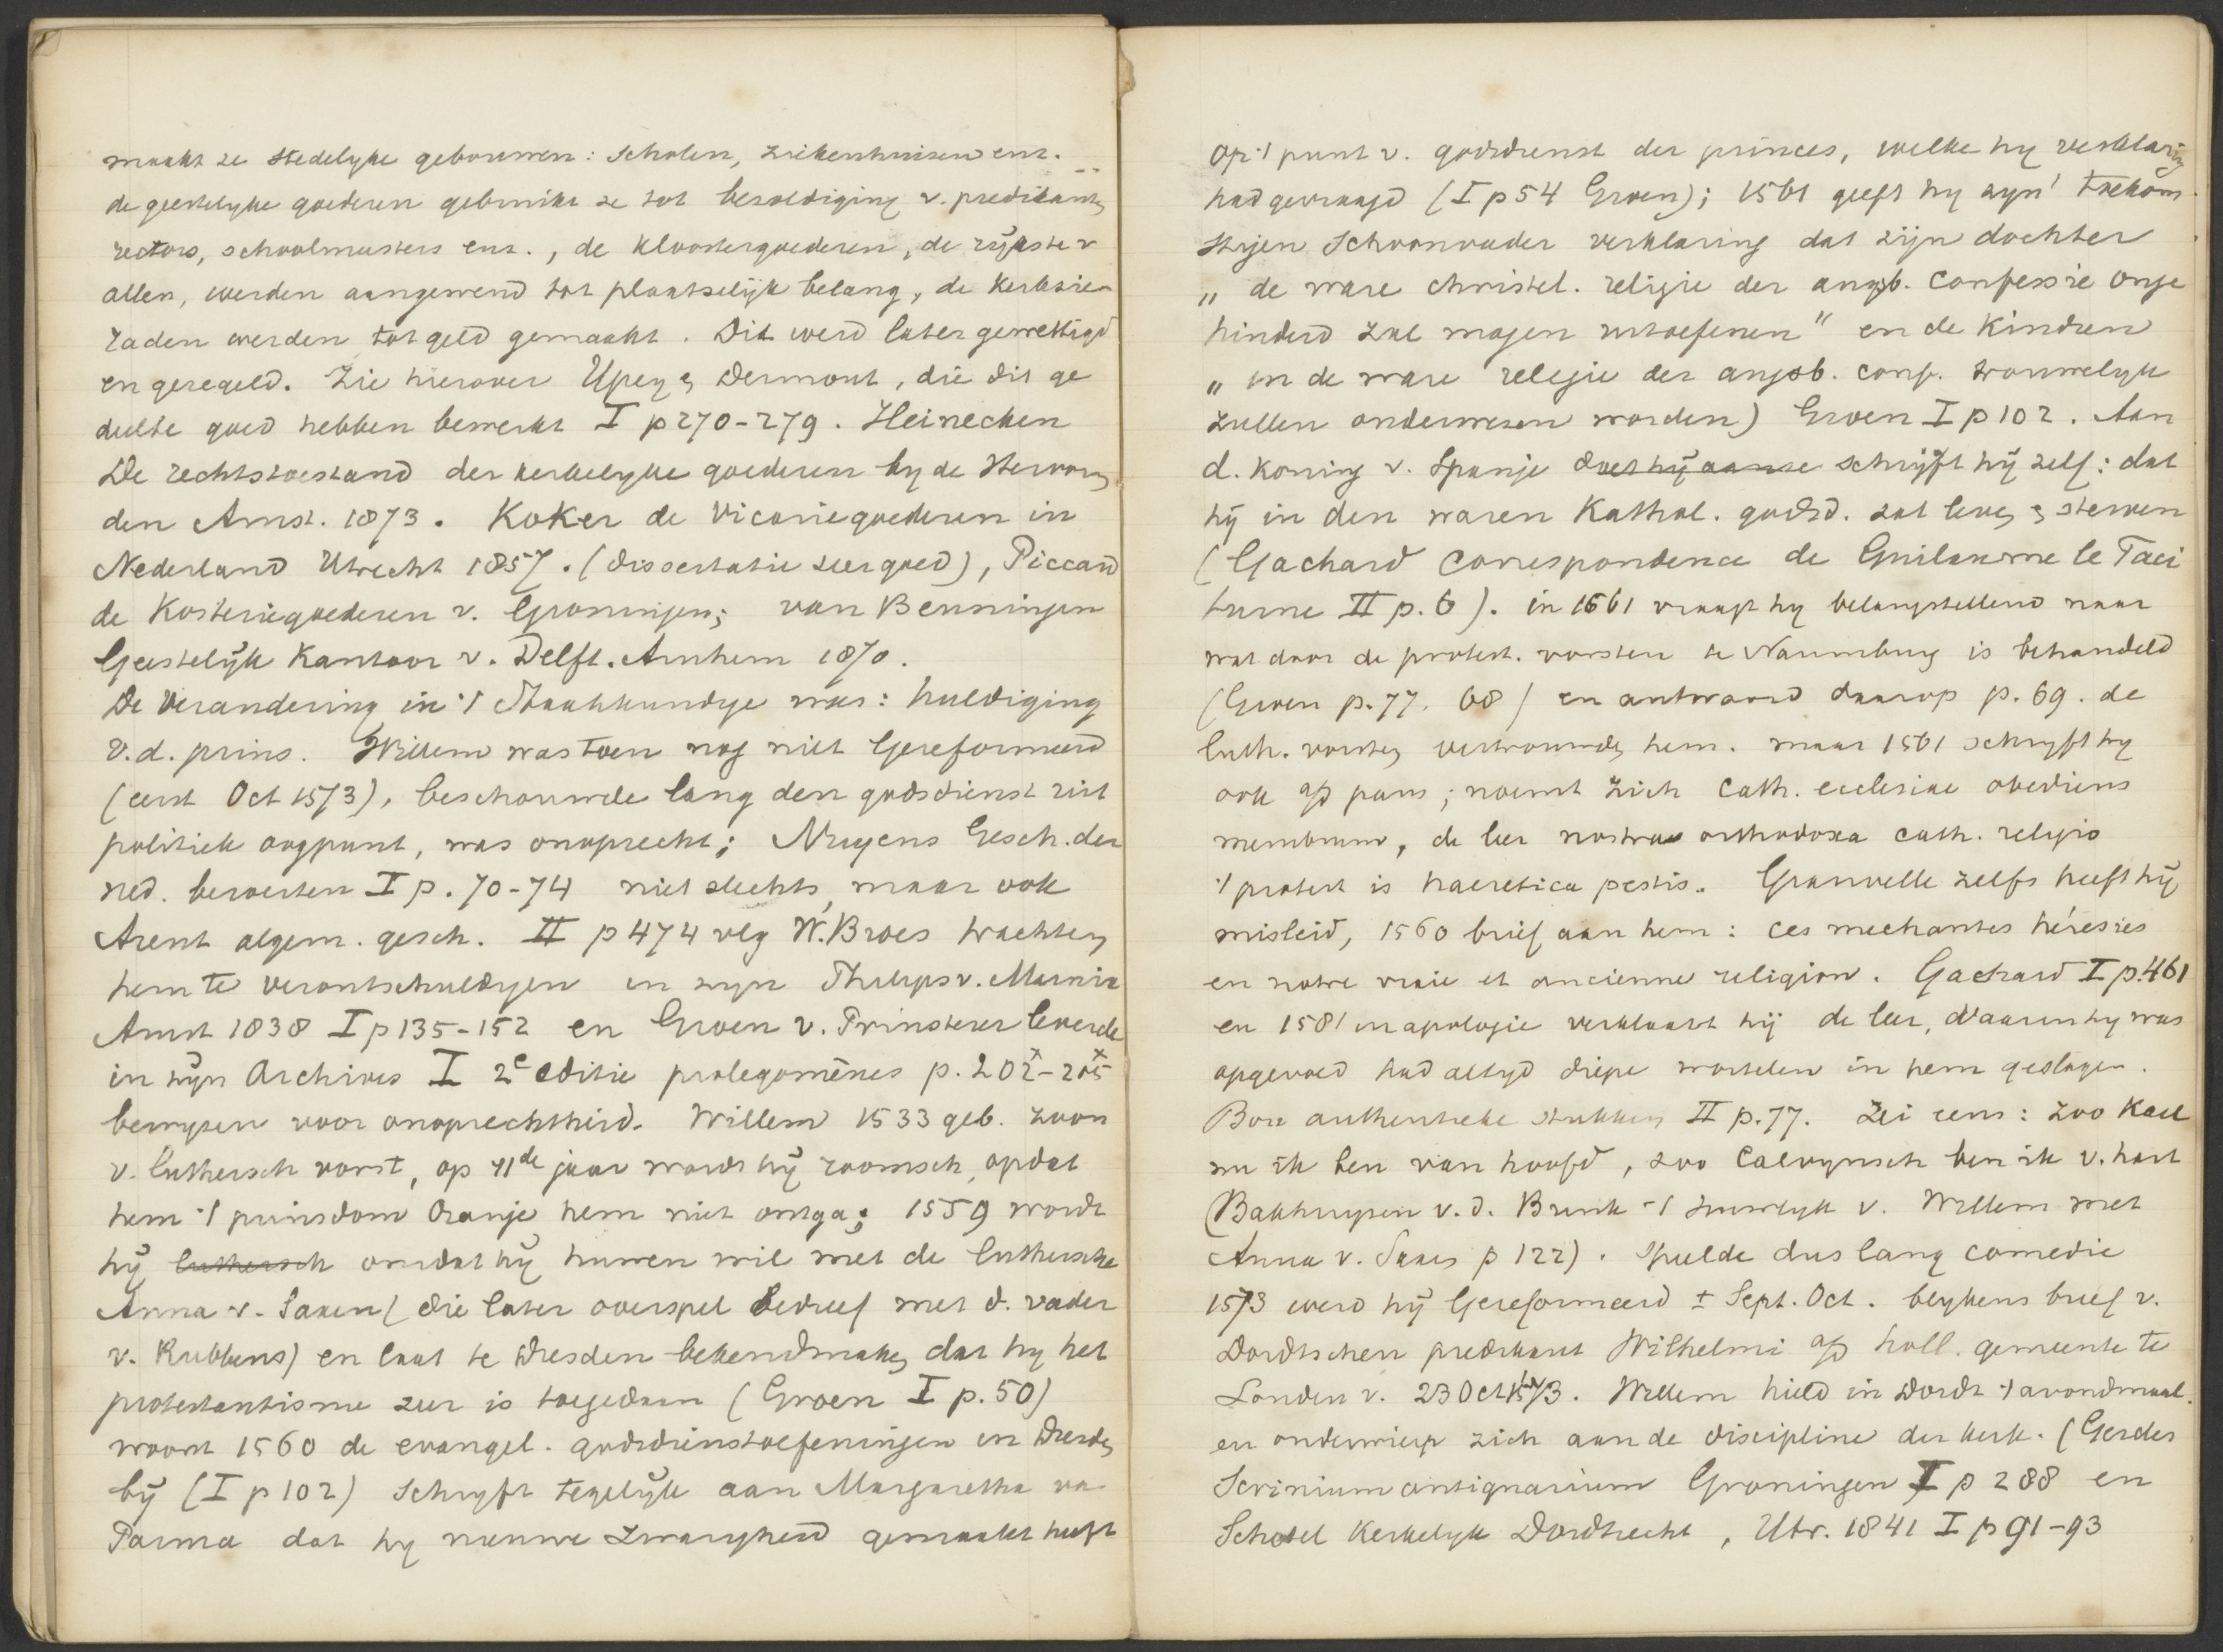 maakt ze stedelyke gebouwen: scholen, ziekenhuizen enz.
de geestelyke goederen gebruikt ze tot bezoldiging v. predikants,
rectors, schoolmeesters enz., de kloostergoederen, de rykste v
allen, werden aangewend tot plaatselijk belang, de kerksie-
raden werden tot geld gemaakt. Dit werd later gewettigd
en geregeld. Zie hierover Ypey & Dermout, die dit ge
deelte goed hebben bewerkt I p 270-279. Heinecken
De rechtstoestand der kerkelyke goederen by de Hervorm
den Amst. 1873. Koker de Vicariegoederen in
Nederland Utrecht 1857. (dissertatie zeer goed), Piccard
de Kosteriegoederen v. Groningen; van Benningen
Geestelijk Kantoor v. Delft. Arnhem 1870.
De verandering in 't Staatkundige was: huldiging
v.d. prins. Willem was toen nog niet Gereformeerd
(eerst Oct 1573), beschouwde lang den godsdienst uit
politiek oogpunt, was onoprecht; Nuyens Gesch. der
ned. beroerten I p. 70-74 niet slechts, maar ook
Arent algem. gesch. II p 474 vlg W. Broes trachtten
hem te verontschuldigen in zyn Philips v. Marnix
Amst 1838 I p 135-152 en Groen v. Prinsterer leverde
in zijn Archives I 2e editie prolegomènes p. 202x-205x
bewyzen voor onoprechtheid. Willem 1533 geb. zoon
v. Luthersch vorst, op 11de jaar wordt hij roomsch, opdat
hem 't prinsdom Oranje hem niet ontga; 1559 wordt
hij luthersch omdat hij huwen wil met de luthersche
Anna v. Saxen (die later overspel bedreef met d. vader
v. Rubbens) en laat te Dresden bekendmaken dat hy het
protestantisme zeer is toegedaan (Groen I p. 50)
woont 1560 de evangel. godsdienstoefeningen in Dresden
bij (I p 102) schryft tegelijk aan Margaretha va
Parma dat hy nieuwe zwarigheid gemaakt heeft
op 't punt v. godsdienst der princes, welke hy verklaring
had gevraagd (I p 54 Groen); 1561 geeft hy zyn' toekom
stigen Schoonvader verklaring dat zijn dochter
" de ware christel. religie der augsb. confessie onge
hinderd zal mogen uitoefenen" en de kindren
" in de ware religie der augsb. conf. trouwelyk
zullen onderwezen worden) Groen I p 102. Aan
d. koning v. Spanje doet hij aanse schrijft hij zelf: dat
hij in den waren Kathol. godsd. zal leven & sterven
(Gachard Correspondence de Guilaume le Taci
turne II p. 6). in 1561 vraagt hy belangstellend naar
wat door de protest. vorsten te Naumburg is behandeld
(Groen p. 77. 68) en antwoord daarop p. 69. de
luth. vorsten vertrouwden hem. maar 1561 schryft hy
ook a/d paus; noemt zich cath. ecclesiae obediens
membrum, de leer nostra orthodoxa cath. religio
't protest is haeretica pestis. Granvelle zelfs heeft hij
misleid, 1560 brief aan hem: ces mechantes hérésies
en notre vraie et ancienne religion. Gachard I p. 461
en 1581 in apologie verklaart hij de leer, waarin hy was
opgevoed had altyd diepe wortelen in hem geslagen.
Bor authentieke stukken II p. 77. Zei eens: zoo kaal
nu ik ben van hoofd, zoo Calvynsch ben ik v. hart
(Bakhuyzen v.d. Brink 't huwelyk v. Willem met
Anna v. Saxen p 122). Speelde dus lang comedie
1573 werd hij Gereformeerd ± Sept. Oct. blykens brief v.
Dordtschen predikant Wilhelmi a/d holl. gemeente te
Londen v. 23 Oct 1573. Willem hield in Dordt 't avondmaal.
en onderwierp zich aan de discipline der kerk. (Gerdes
Scrinium antiquarium Groningen I p 288 en
Schotel Kerkelyk Dordrecht, Utr. 1841 I p 91-93